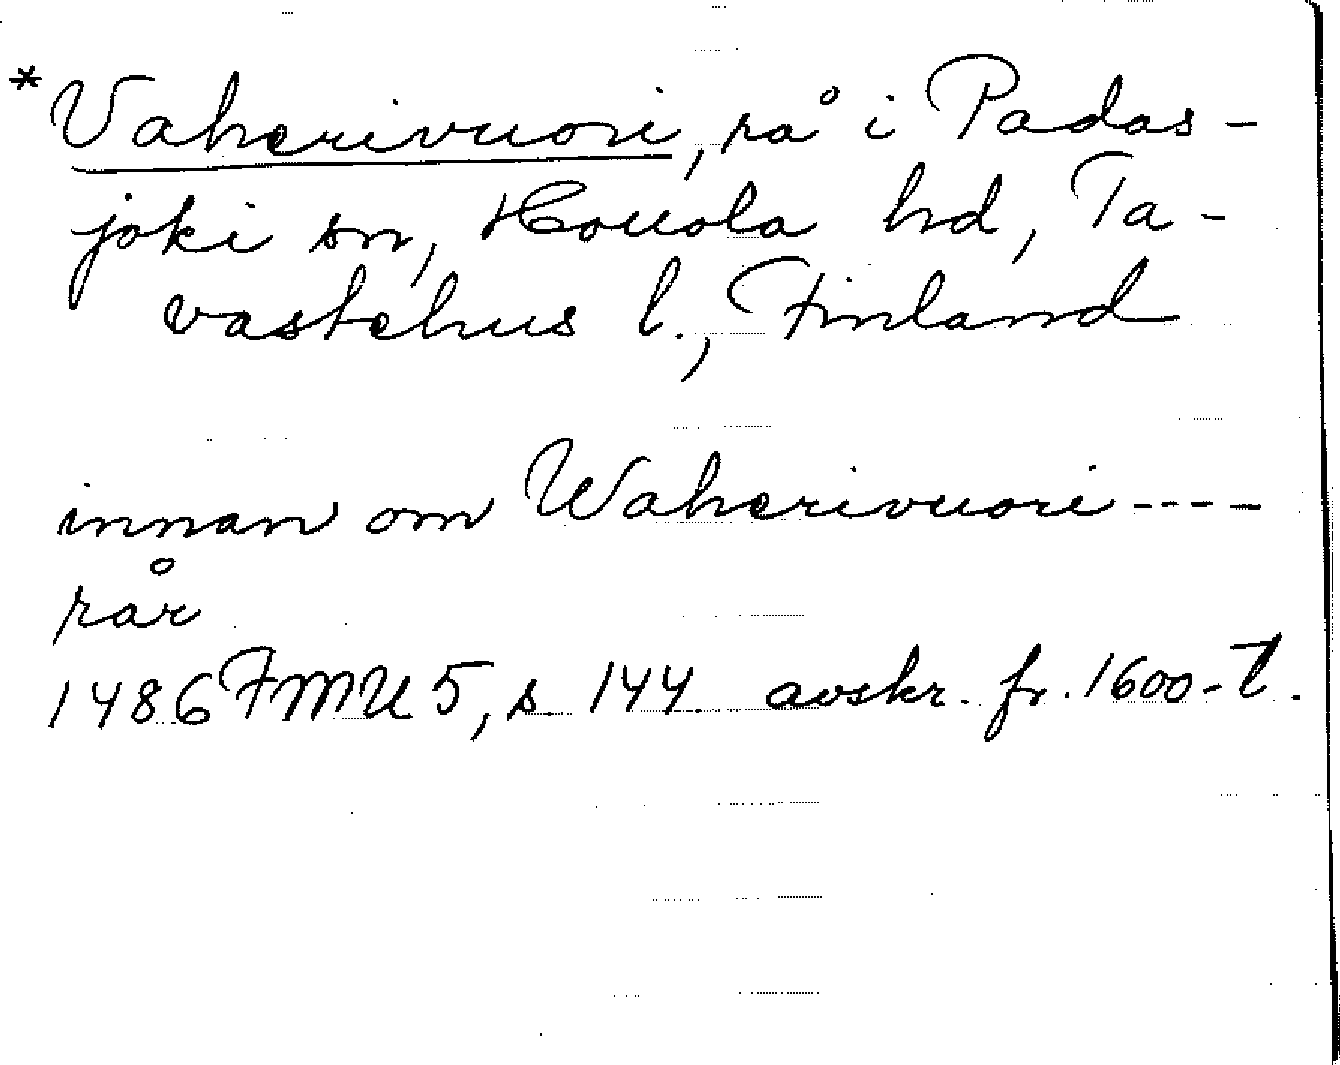 *Vaherivuori, rå i Padas-
joki sn, Hollola hd, Ta-
vastehus l., Finland
innan om Waherivuori ----
rår
1486 FMU 5, s. 144. avskr. fr. 1600-t.